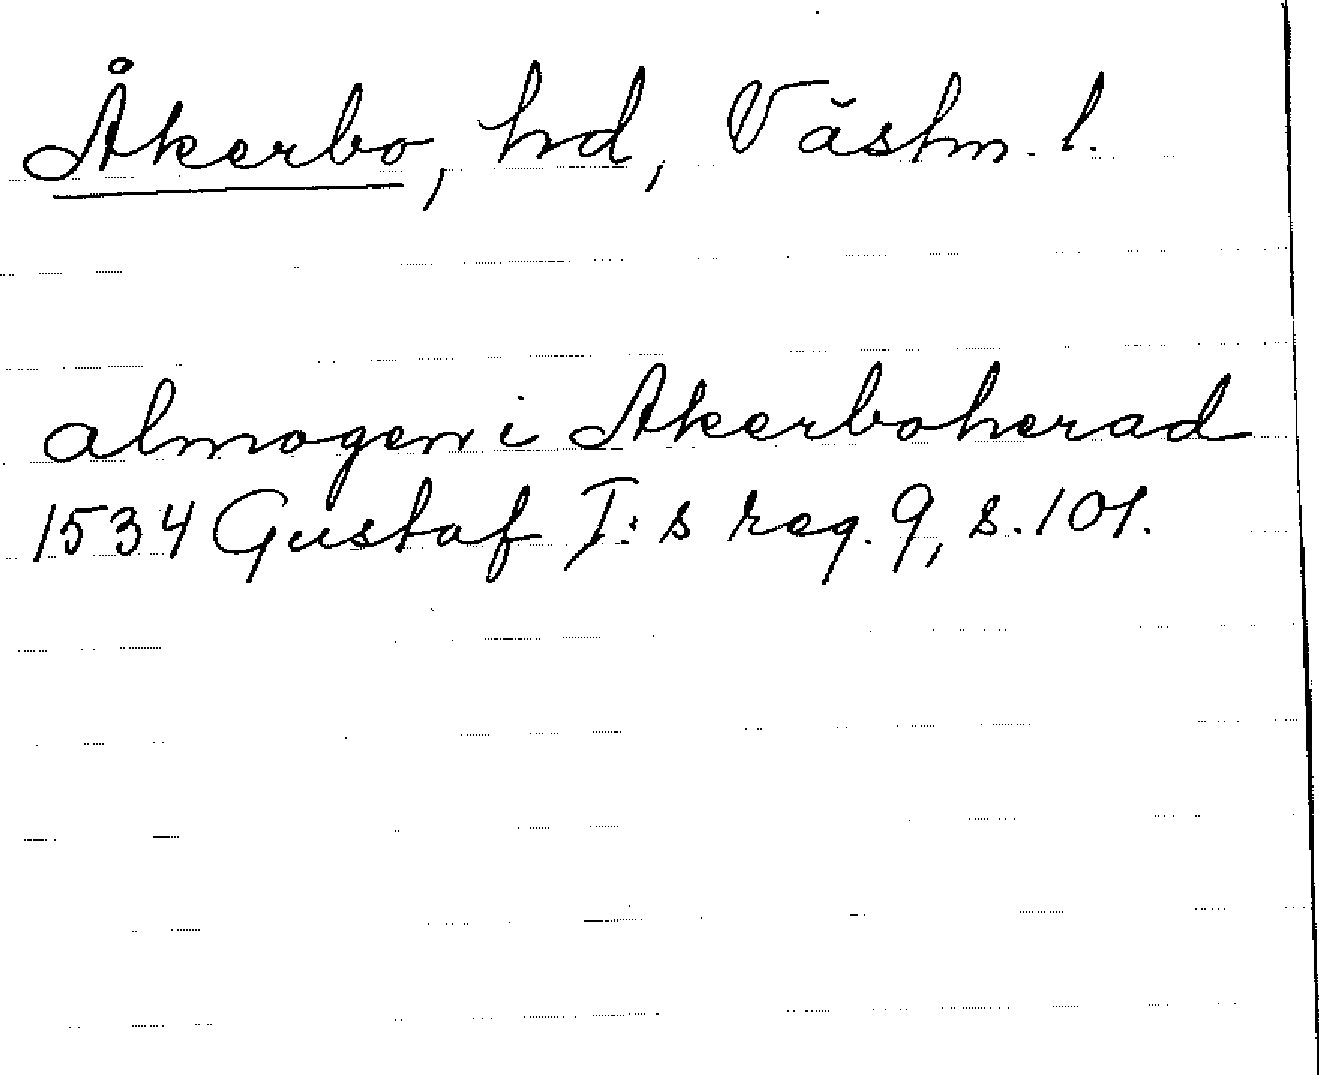 Åkerbo, hd, Västm. l.
almogen i Akerboherad
1534 Gustaf I:s reg. 9, s. 101.